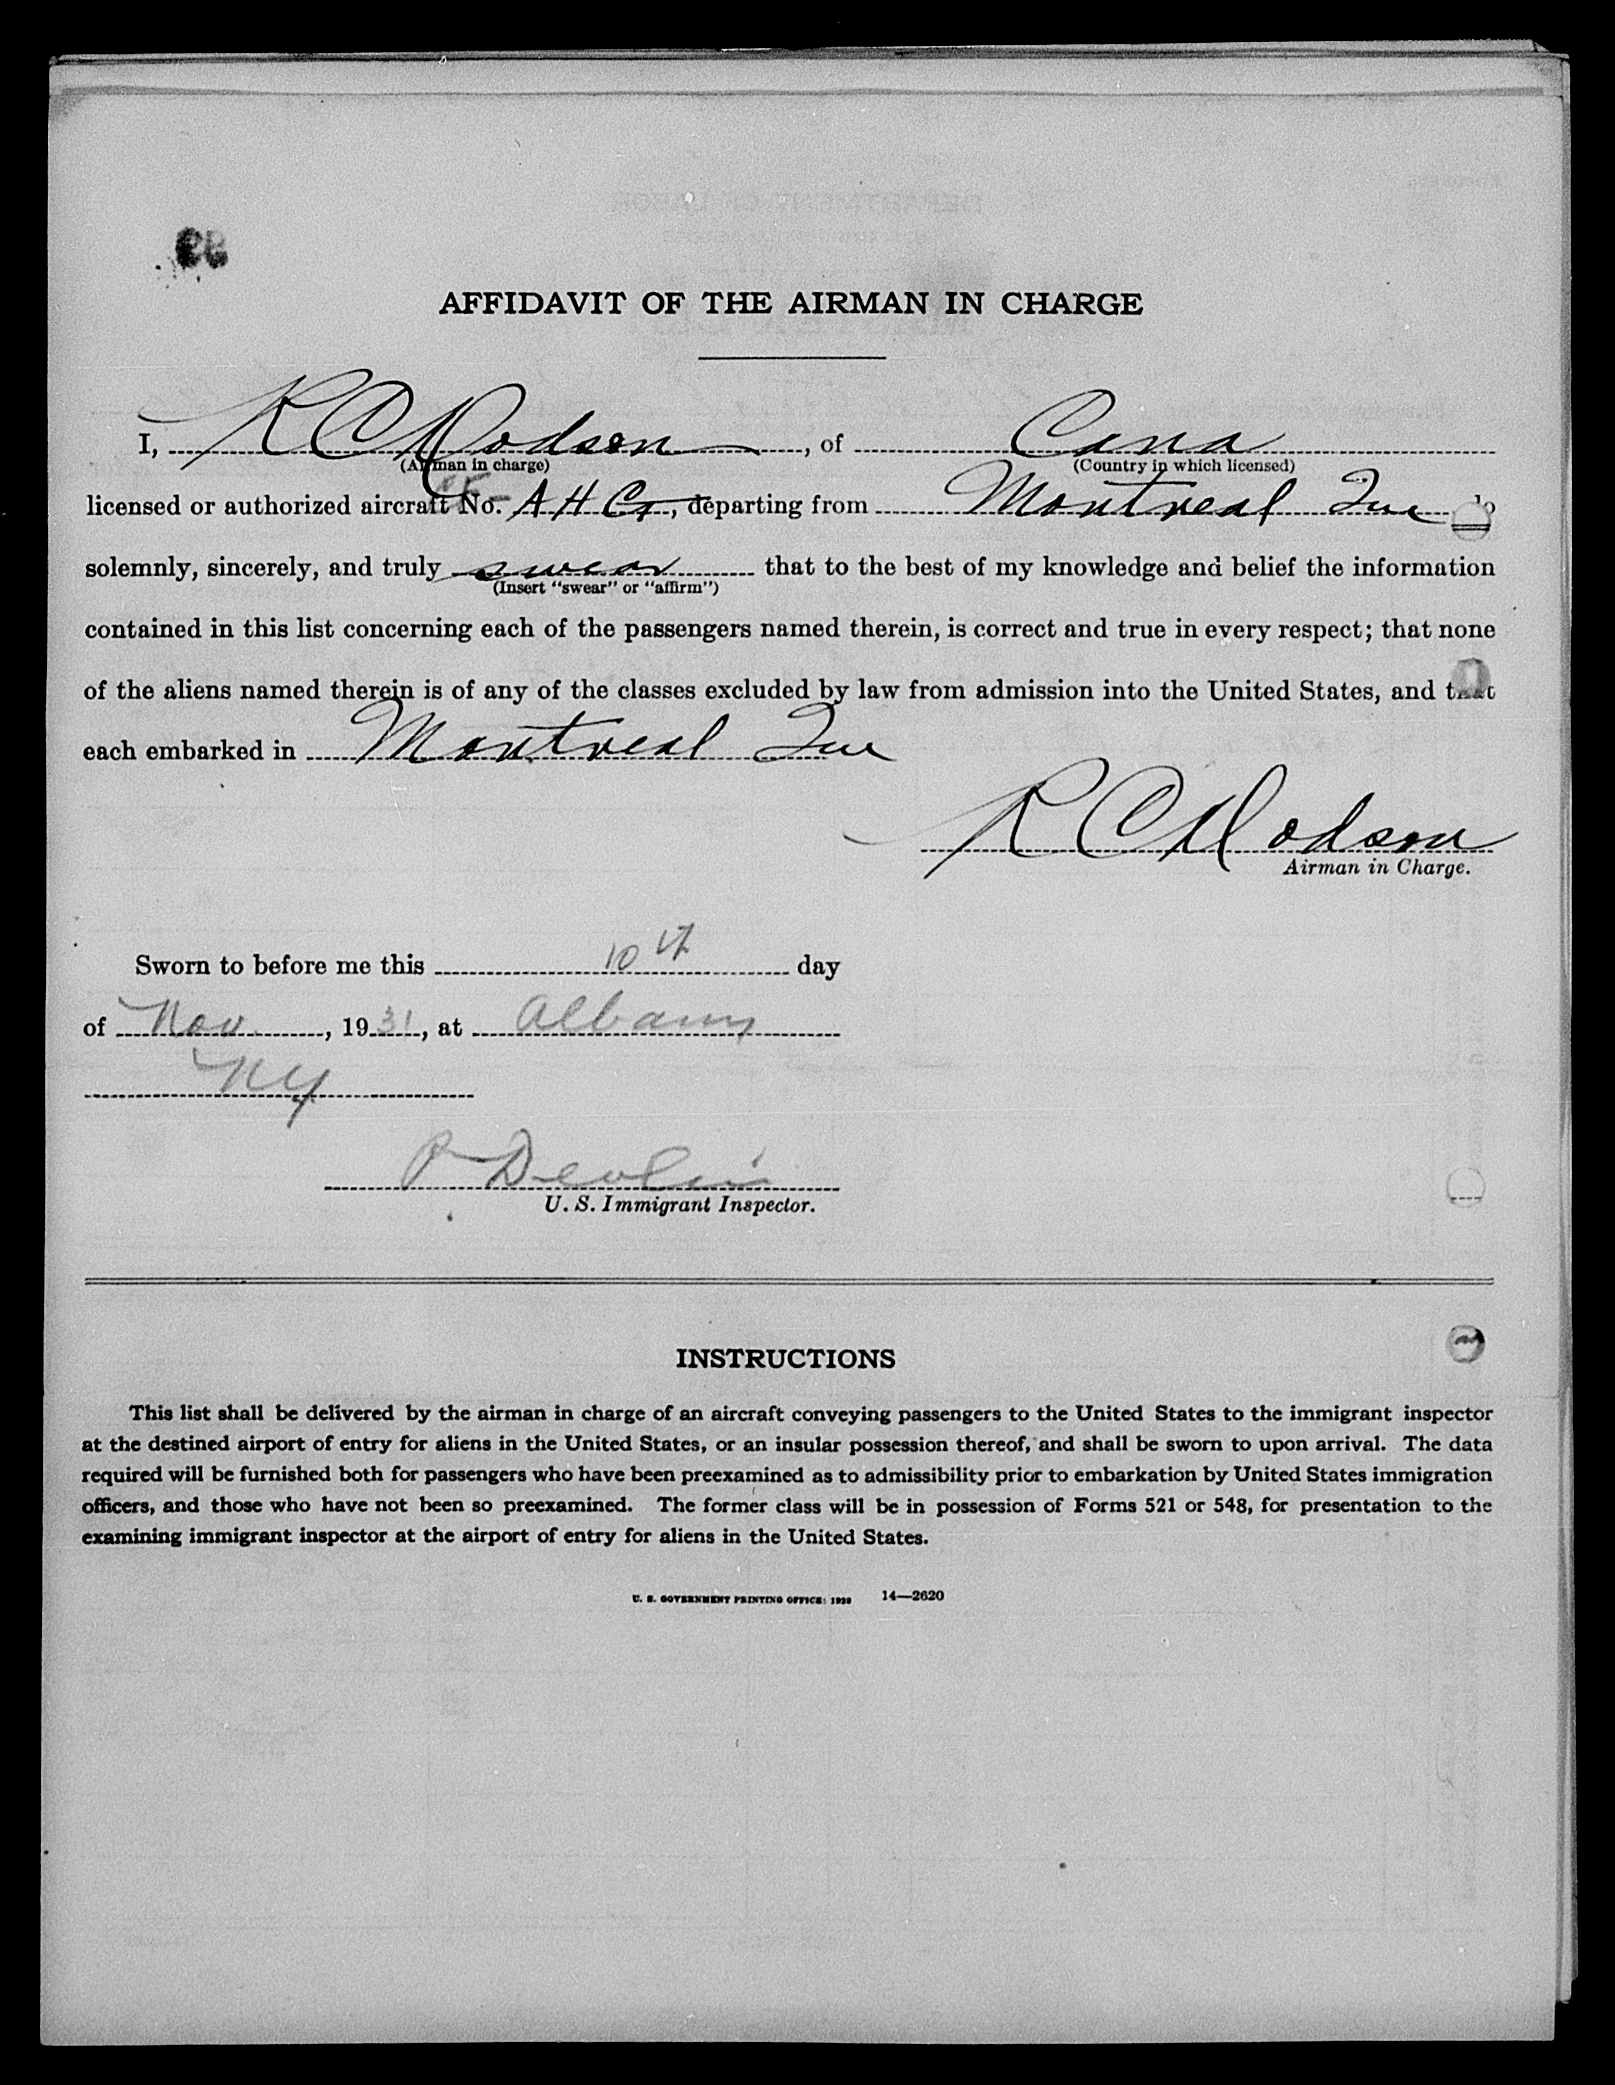 AFFIDAVIT OF THE AIRMAN IN CHARGE
I, R C Dodson, of Cana
(Airman in charge) (Country in which licensed)
licensed or authorized aircraft No. CF- A H C G, departing from Montreal Que do
solemnly, sincerely, and truly swear that to the best of my knowledge and belief the information
(Insert "swear" or "affirm")
contained in this list concerning each of the passengers named therein, is correct and true in every respect; that none
of the aliens named therein is of any of the classes excluded by law from admission into the United States, and that
each embarked in Montreal Que
R C Dodson
Airman in Charge.
Sworn to before me this 10th day
of Nov., 1931, at Albany
NY
P Devlin
U. S. Immigrant Inspector.
INSTRUCTIONS
This list shall be delivered by the airman in charge of an aircraft conveying passengers to the United States to the immigrant inspector
at the destined airport of entry for aliens in the United States, or an insular possession thereof, and shall be sworn to upon arrival. The data
required will be furnished both for passengers who have been preexamined as to admissibility prior to embarkation by United States immigration
officers, and those who have not been so preexamined. The former class will be in possession of Forms 521 or 548, for presentation to the
examining immigrant inspector at the airport of entry for aliens in the United States.
U. S. GOVERNMENT PRINTING OFFICE: 14—2620